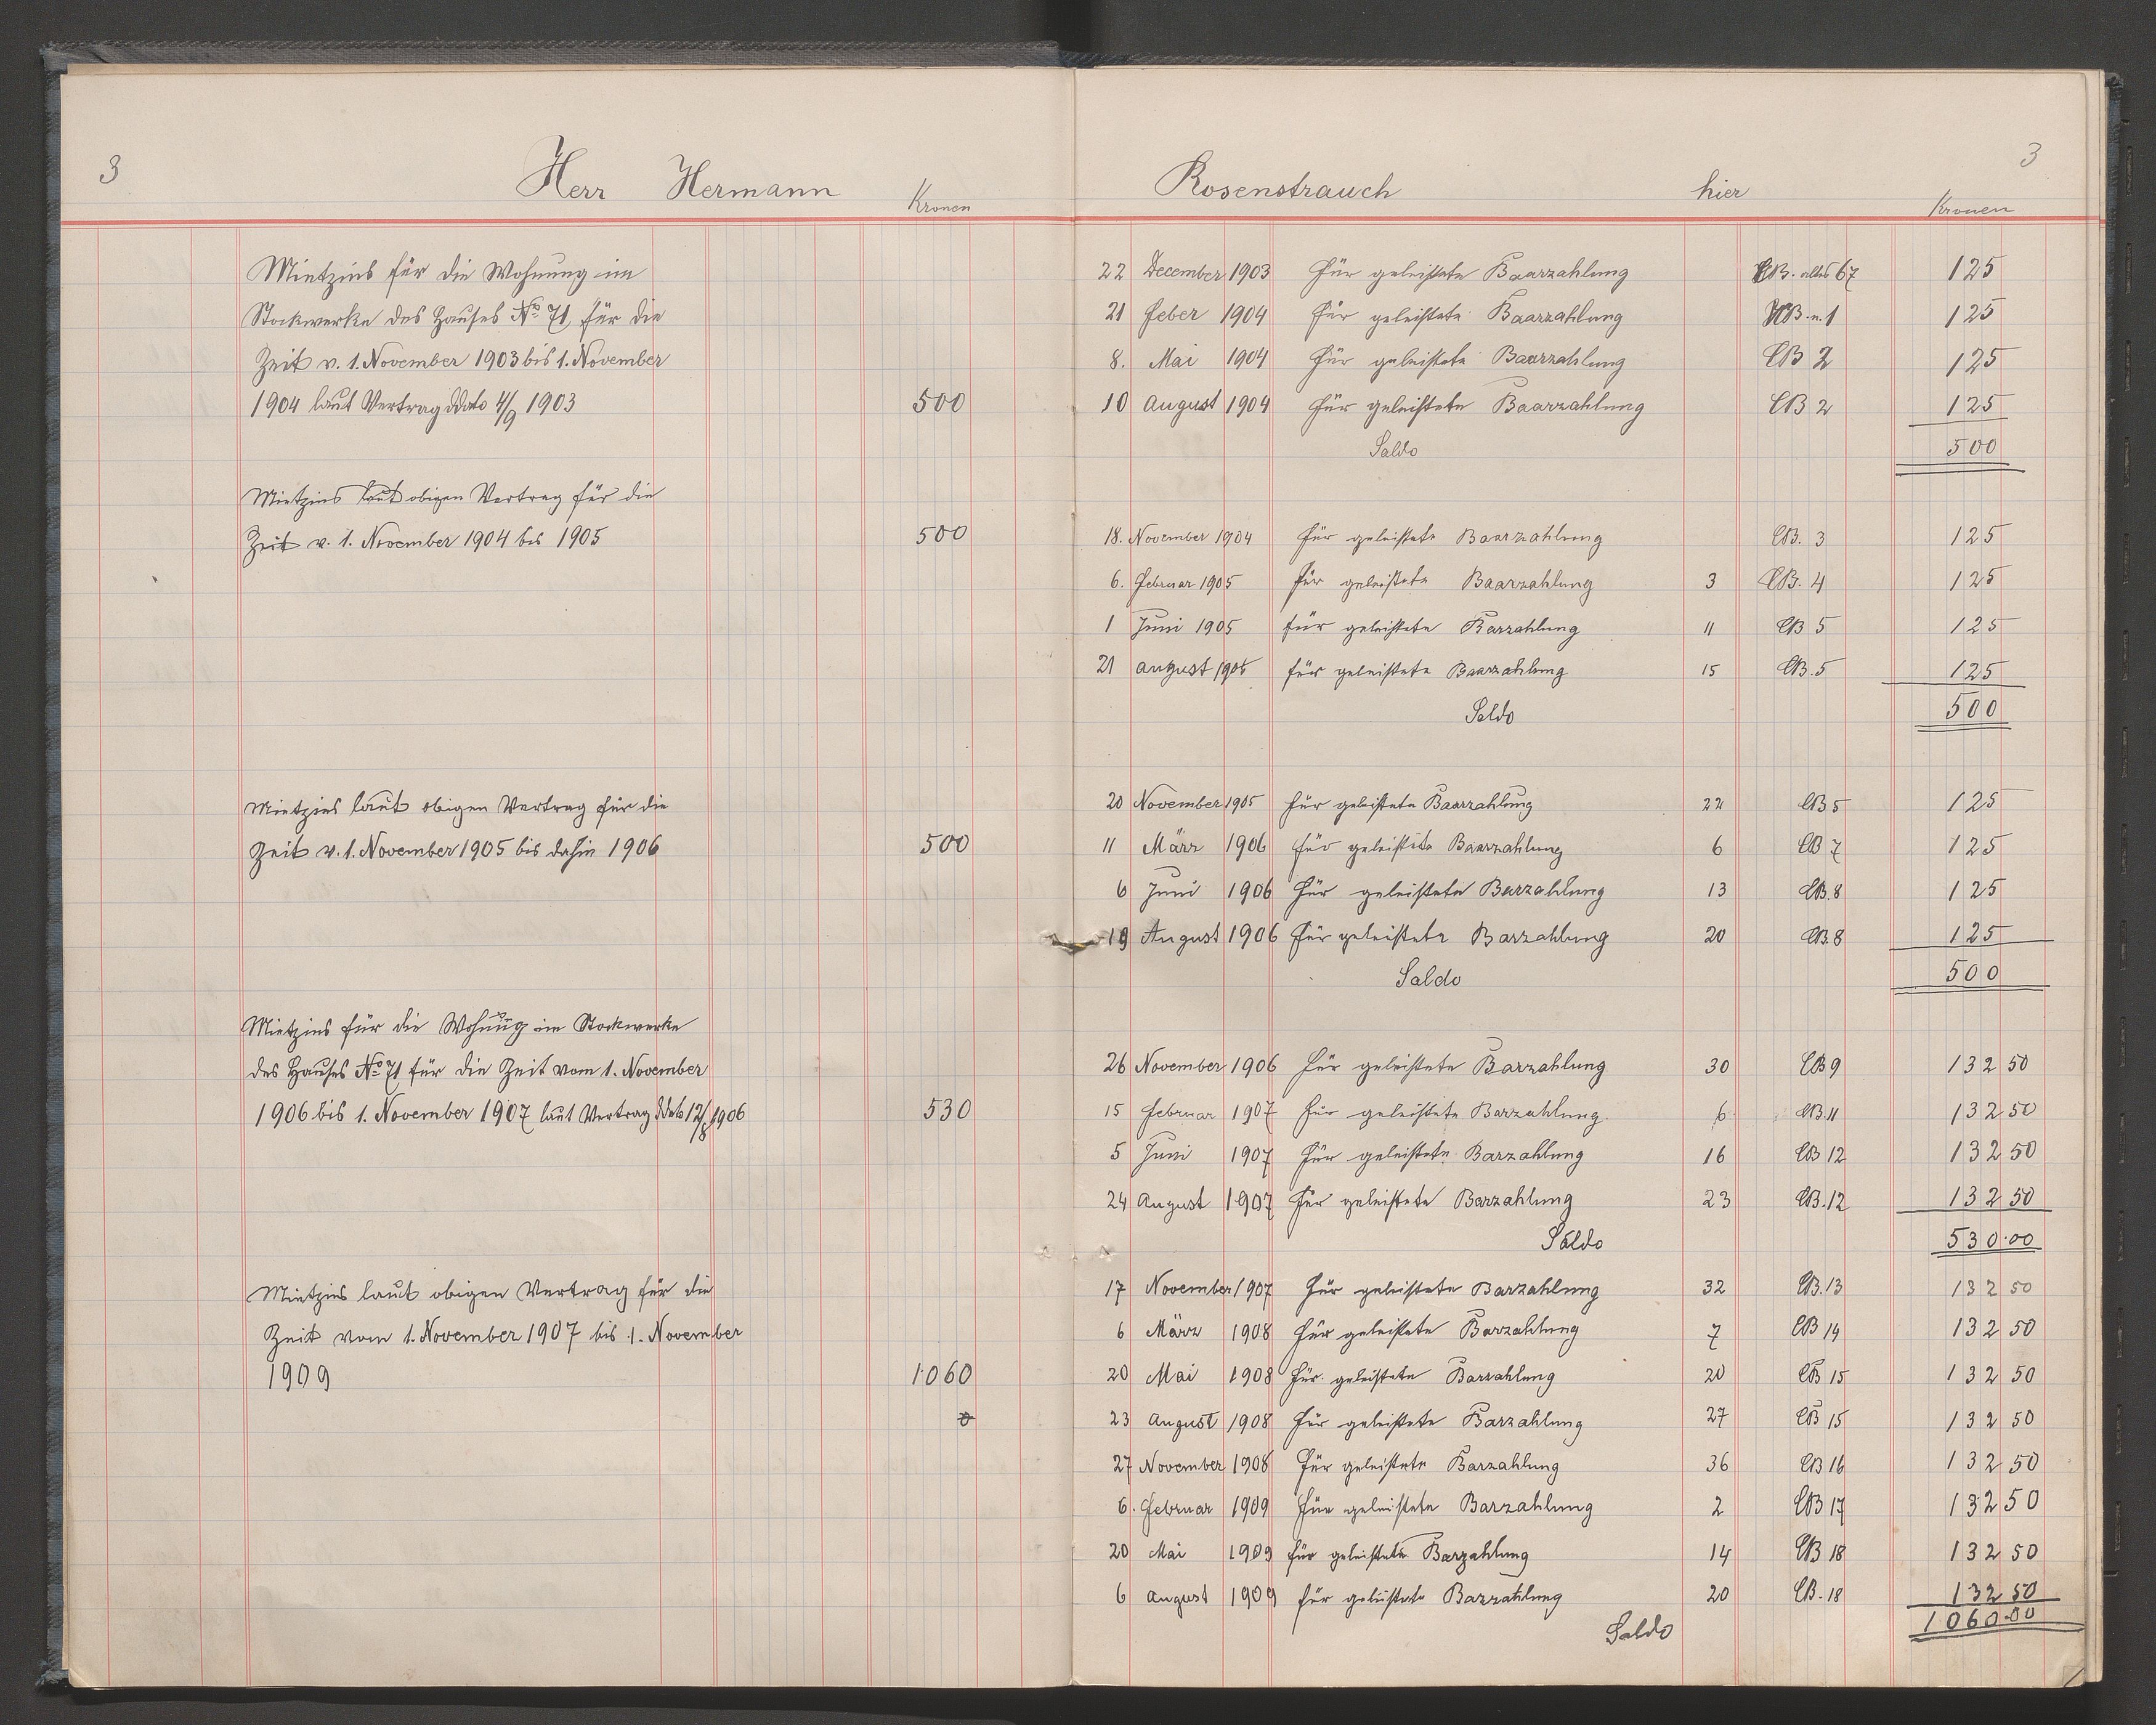 3
Herr Hermann
Kronen
Mietzins für die Wohnung im
Stockwerke des Hauses No 71, für die
Zeit v. 1. November 1903 bis 1. November
1904 laut Vertrag ddato 4/9 1903 500
Mietzins laut obigen Vertrag für die
Zeit v. 1. November 1904 bis 1905 500
Mietzins laut obigen Vertrag für die
Zeit v. 1. November 1905 bis dahin 1906 500
Mietzins für die Wohnung im Stockwerke
des Hauses No 71 für die Zeit vom 1. November
1906 bis 1. November 1907 laut Vertrag ddato 12/8 1906 530
Mietzins laut obigen Vertrag für die
Zeit vom 1. November 1907 bis 1. November
1909 1060
Rosenstrauch hier
3
Kronen
22 December 1903 Für geleistete Baarzahlung CB. altes 67 125
21 Feber 1904 Für geleistete Baarzahlung CB. n. 1 125
8. Mai 1904 Für geleistete Baarzahlung CB 2 125
10 August 1904 Für geleistete Baarzahlung CB 2 125
Saldo 500
18. November 1904 Für geleistete Baarzahlung CB. 3 125
6. Februar 1905 Für geleistete Baarzahlung 3 CB. 4 125
1 Juni 1905 für geleistete Barzahlung 11 CB 5 125
21 August 1905 für geleistete Baarzahlung 15 CB. 5 125
Saldo 500
20 November 1905 Für geleistete Baarzahlung 22 CB 5 125
11 März 1906 für geleistete Baarzahlung 6 CB 7 125
6 Juni 1906 Für geleistete Barzahlung 13 CB. 8 125
19 August 1906 Für geleistete Barzahlung 20 CB. 8 125
Saldo 500
26 November 1906 Für geleistete Barzahlung 30 CB 9 132 50
15 Februar 1907 Für geleistete Barzahlung. 6 CB. 11 132 50
5 Juni 1907 Für geleistete Barzahlung 16 CB 12 132 50
24 August 1907 Für geleistete Barzahlung 23 CB. 12 132 50
Saldo 530.00
17 November 1907 Für geleistete Barzahlung 32 CB. 13 132 50
6 März 1908 Für geleistete Barzahlung 7 CB 14 132 50
20 Mai 1908 Für geleistete Barzahlung 20 CB 15 132 50
23 August 1908 Für geleistete Barzahlung 27 CB 15 132 50
27 November 1908 Für geleistete Barzahlung 36 CB 16 132 50
6. Februar 1909 Für geleistete Barzahlung 2 CB 17 132 50
20 Mai 1909 für geleistete Barzahlung 14 CB 18 132 50
6 August 1909 für geleistete Barzahlung 20 CB. 18 132 50
Saldo 1060.00